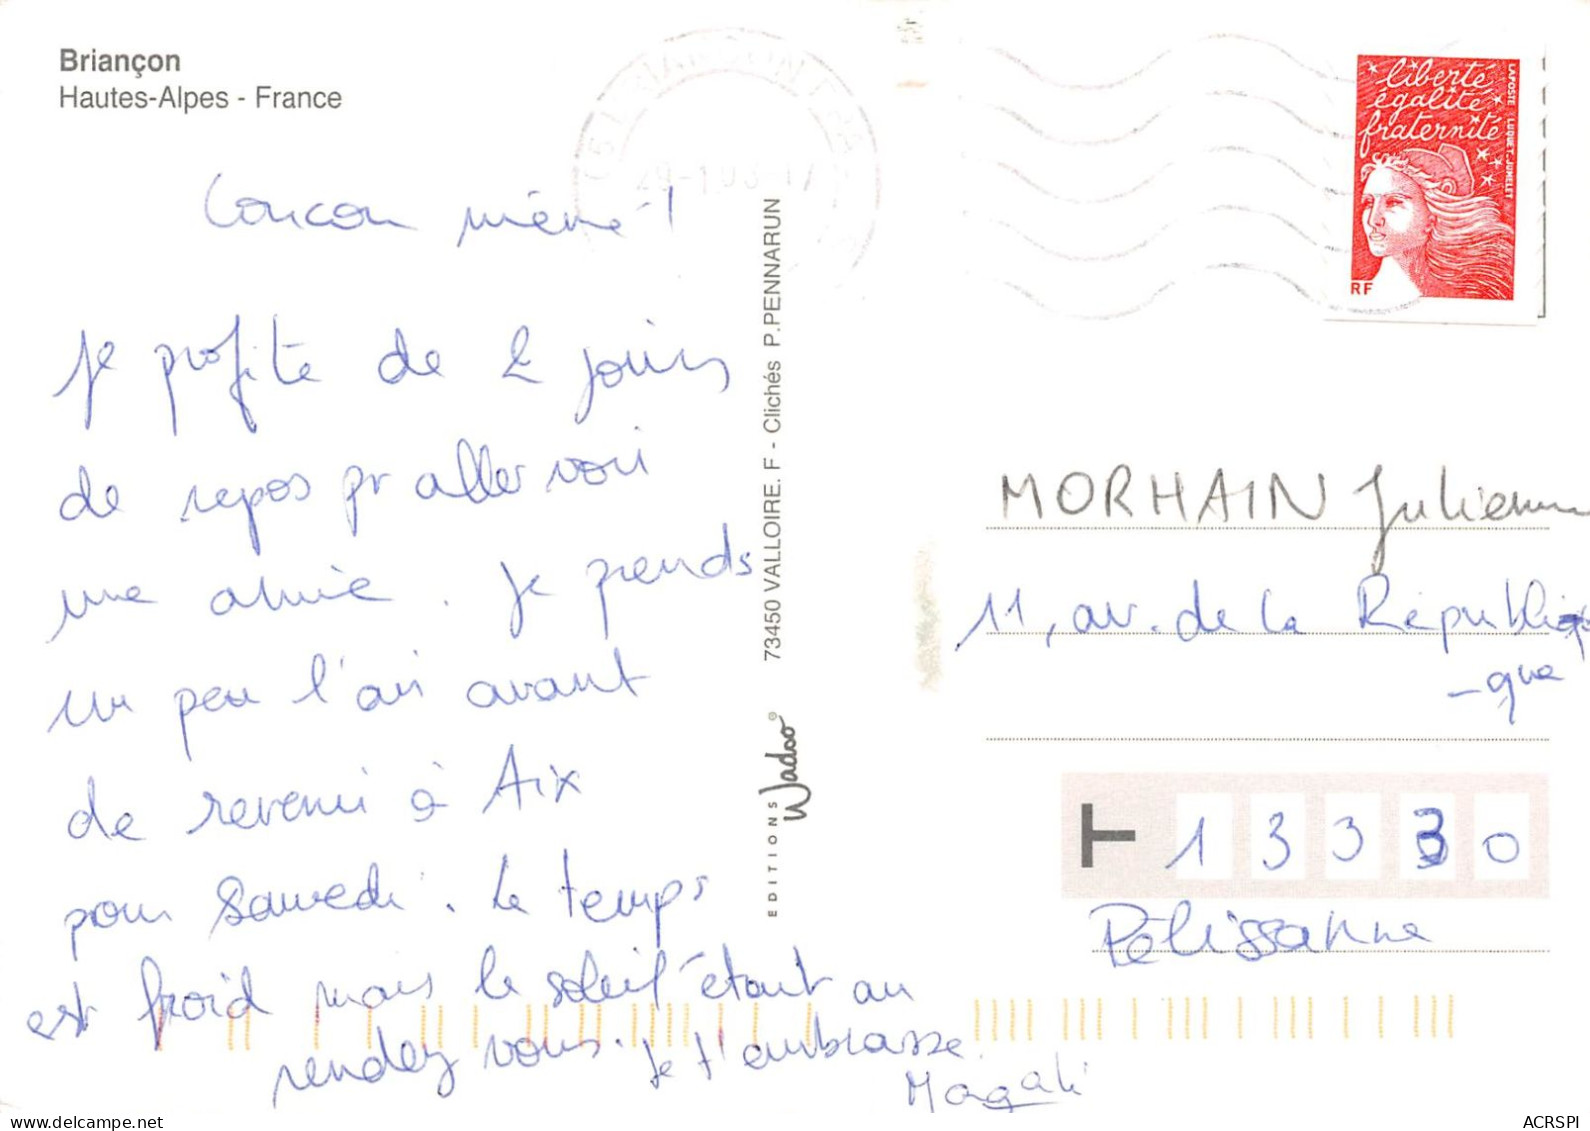 Briançon
Hautes-Alpes - France
Coucou mémé !
Je profite de 2 jours
de repos pr aller voir
une amie. Je prends
un peu l'air avant
de revenir à Aix
pour Samedi. Le temps
est froid mais le soleil étant au
rendez vous. Je t'embrasse
Magali
73450 VALLOIRE. F - Clichés P.PENNARUN
EDITIONS Wadoo ®
liberté
égalité
fraternité
RF
LAPOSTE LUQUET-JUMELET
MORHAIN Julienne
11, av. de la Républiq
-que
T 13330
Pélissanne
ACRSPI